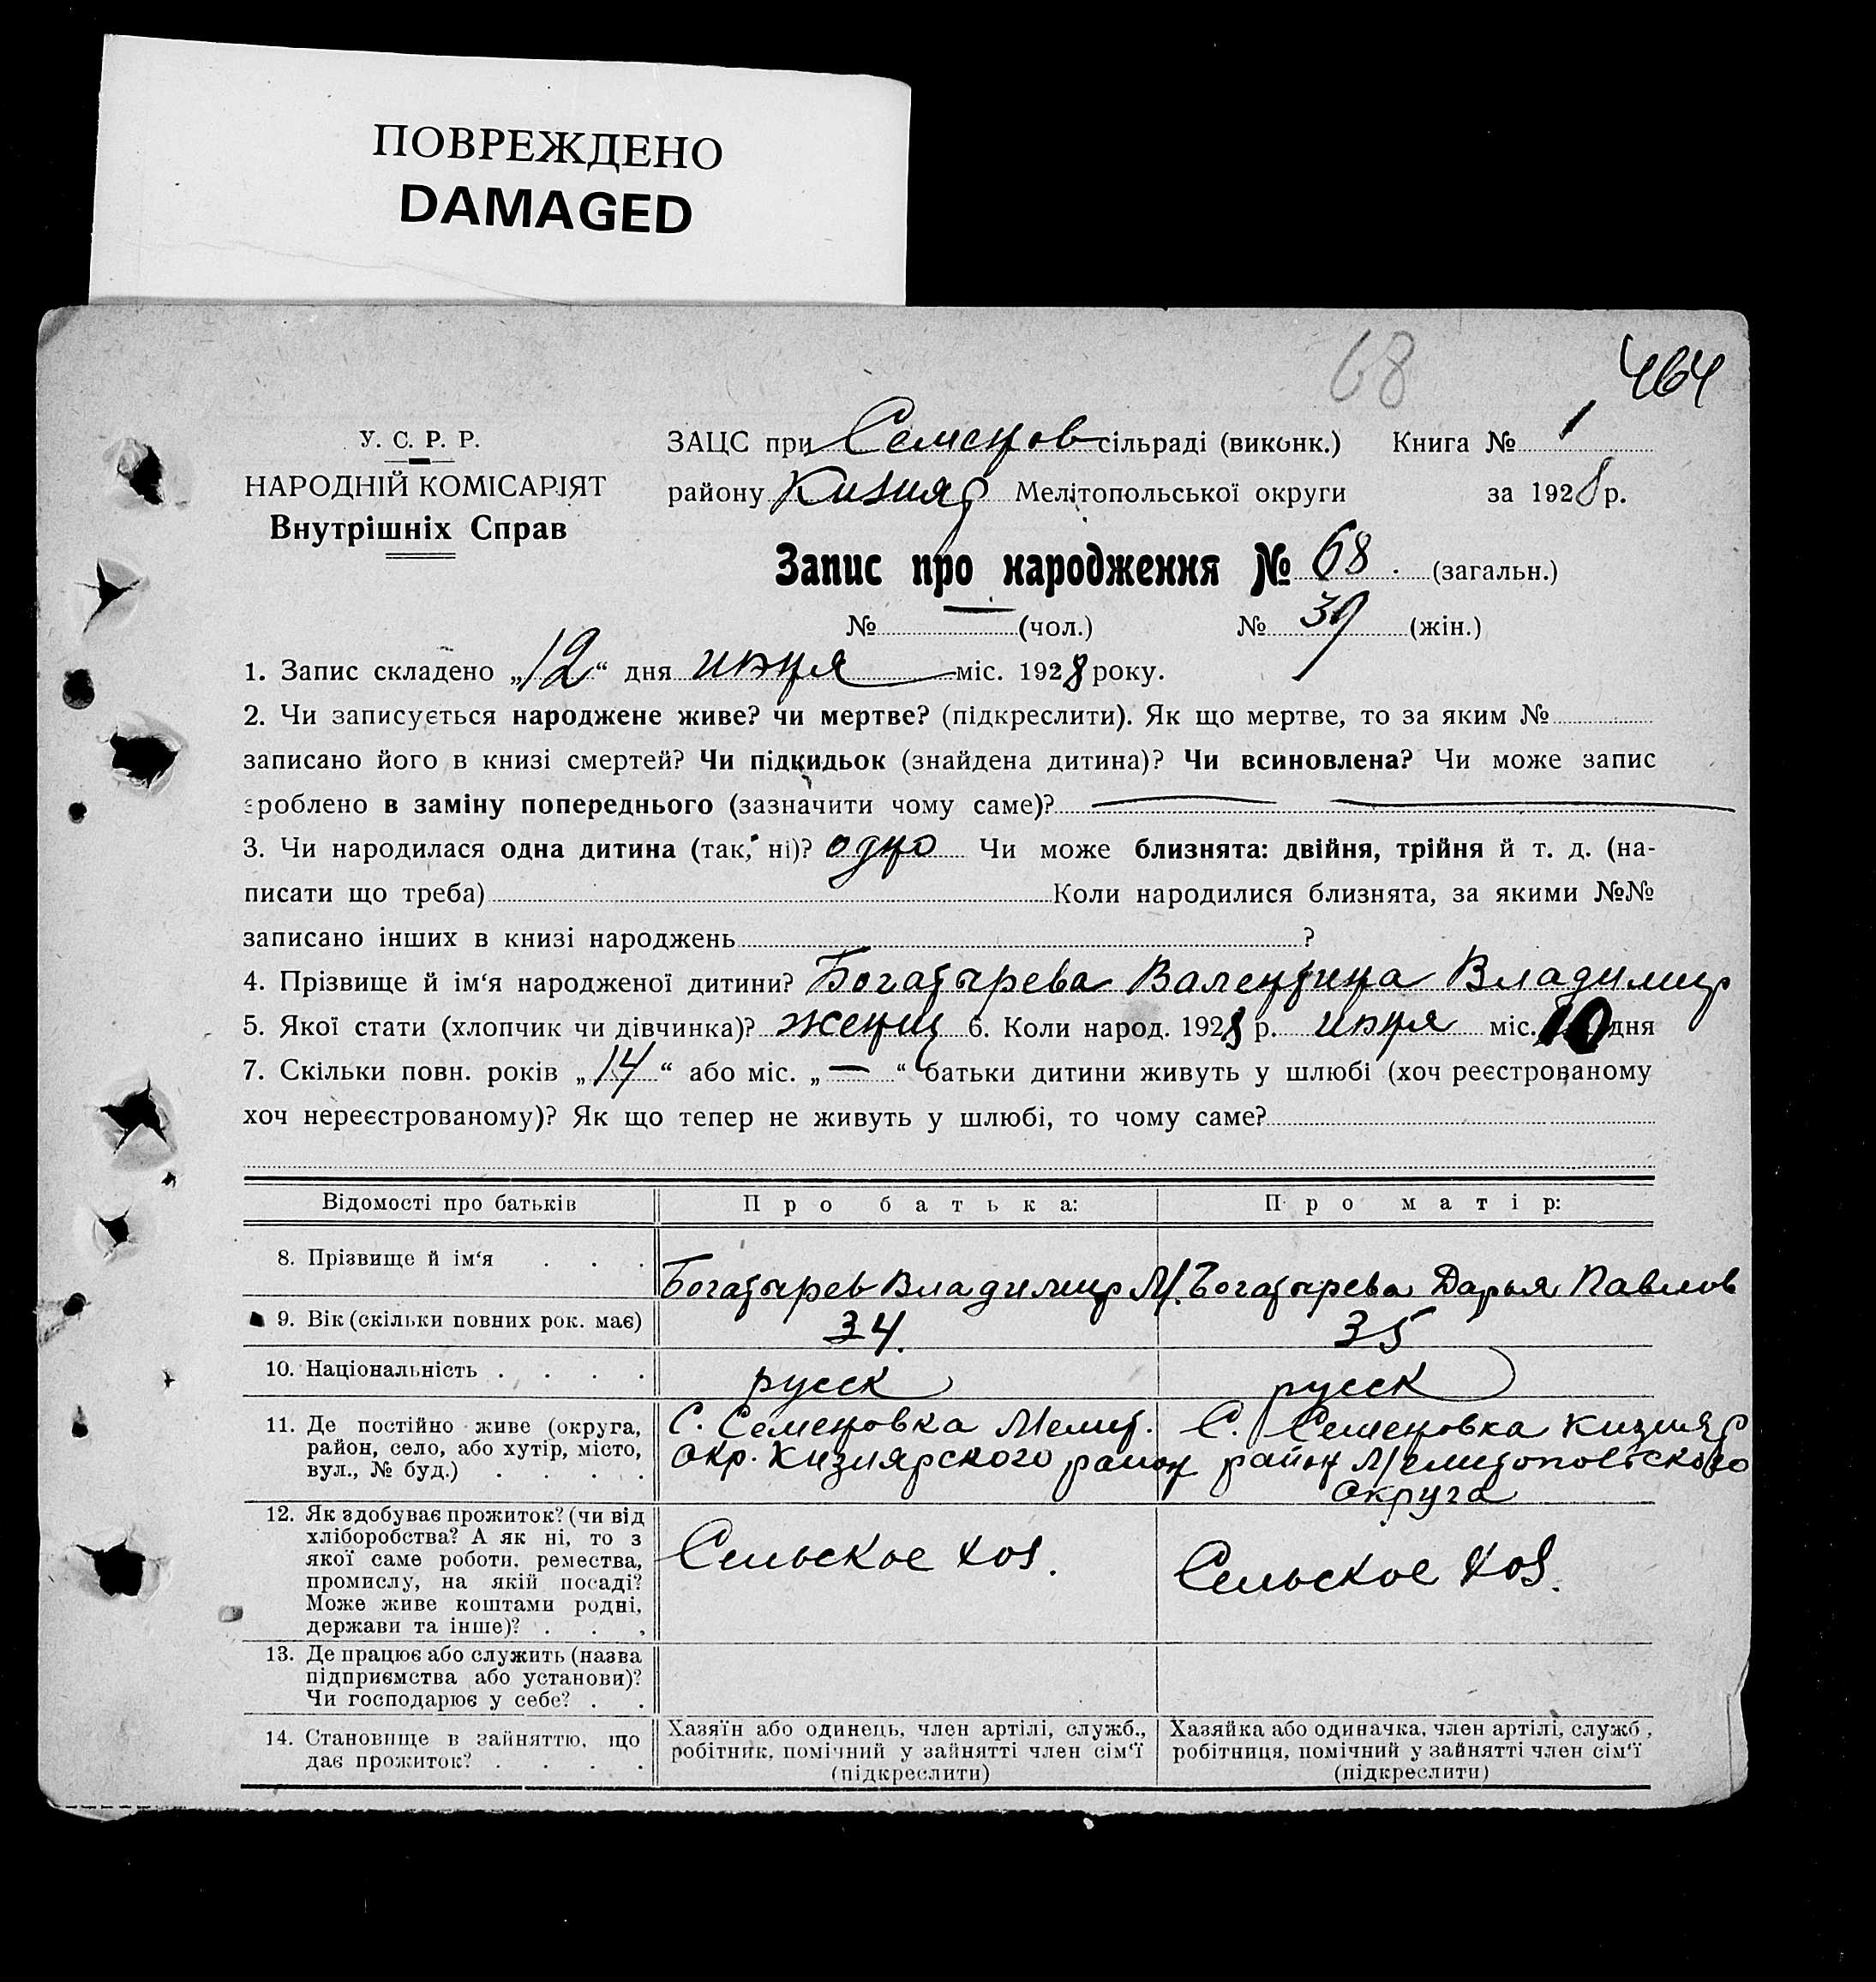 ПОВРЕЖДЕНО
DAMAGED
68
464
У. С. Р. Р.
НАРОДНІЙ КОМІСАРІЯТ
Внутрішніх Справ
ЗАЦС при Семенов сільраді (виконк.) Книга № 1
району Кизияр Мелітопольської округи за 1928 р.
Запис про народження № 68. (загальн.)
№ — (чол.) № 39 (жін.)
1. Запис складено „12“ дня июня міс. 1928 року.
2. Чи записується народжене живе? чи мертве? (підкреслити). Як що мертве, то за яким №
записано його в книзі смертей? Чи підкидьок (знайдена дитина)? Чи всиновлена? Чи може запис
зроблено в заміну попереднього (зазначити чому саме)? — —
3. Чи народилася одна дитина (так, ні)? одно Чи може близнята: двійня, трійня й т. д. (на-
писати що треба) Коли народилися близнята, за якими №№
записано інших в книзі народжень ?
4. Прізвище й ім‘я народженої дитини? Богатырева Валентина Владимир
5. Якої стати (хлопчик чи дівчинка)? женщ 6. Коли народ. 1928 р. июня міс. 10 дня
7. Скільки повн. років „14“ або міс. „—“ батьки дитини живуть у шлюбі (хоч реєстрованому
хоч нереєстрованому)? Як що тепер не живуть у шлюбі, то чому саме?
Відомості про батьків Про батька: Про матір:
8. Прізвище й ім‘я . . . Богатырев Владимир М. Богатырева Дарья Павлов
9. Вік (скільки повних рок. має) 34. 35
10. Національність . . . . русск русск
11. Де постійно живе (округа,
район, село, або хутір, місто,
вул., № буд.) . . . .
С. Семеновка Мелит.
окр. Кизиярского район
С. Семеновка Кизияр
район Мелитопольского
округа
12. Як здобуває прожиток? (чи від
хліборобства? А як ні, то з
якої саме роботи, ремества,
промислу, на якій посаді?
Може живе коштами родні,
держави та інше)? . . .
Сельское хоз.
Сельское хоз.
13. Де працює або служить (назва
підприємства або установи)?
Чи господарює у себе? . .
14. Становище в зайняттю, що
дає прожиток? . . . .
Хазяїн або одинець, член артілі, служб.,
робітник, помічний у зайнятті член сім‘ї
(підкреслити)
Хазяйка або одиначка, член артілі, служб.,
робітниця, помічний у зайнятті член сім‘ї
(підкреслити)